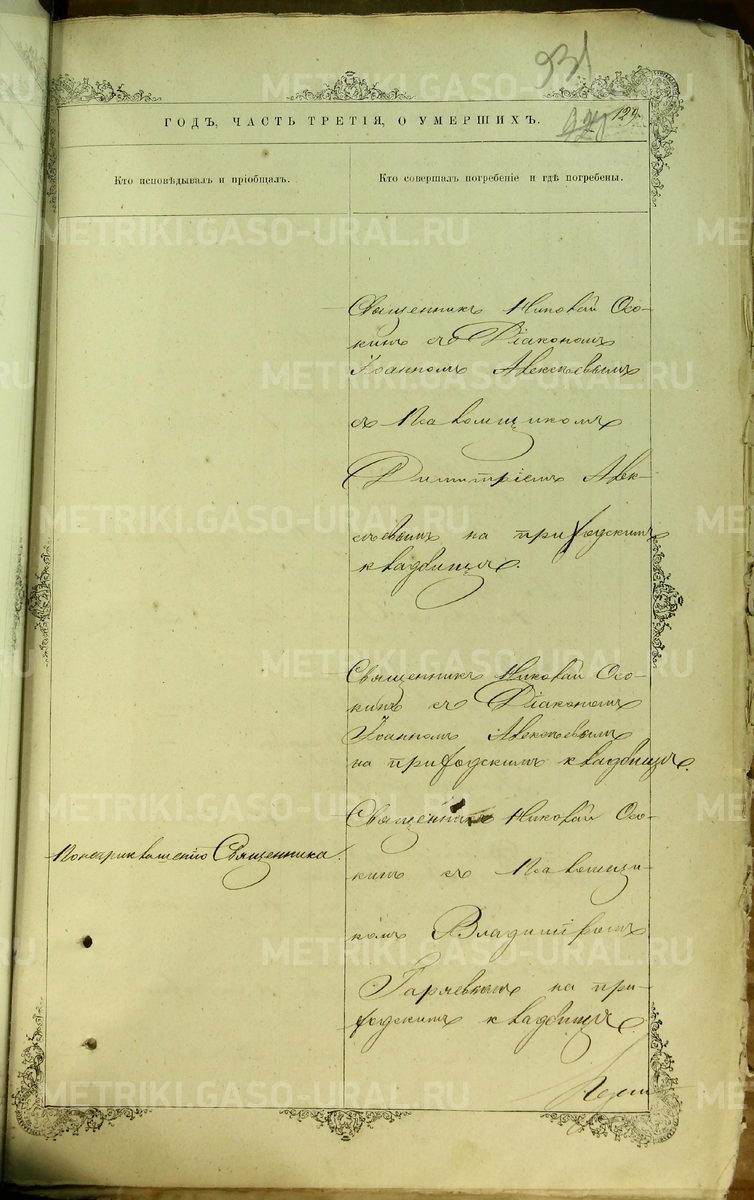 931
ГОДЪ, ЧАСТЬ ТРЕТІЯ, О УМЕРШИХЪ.
124
Кто исповѣдывалъ и пріобщалъ.
Кто совершалъ погребеніе и гдѣ погребены.
Священникъ Николай Осо-
кинъ съ Діакономъ
Іоанномъ Алексѣевымъ
съ Псаломщикомъ
Димитріемъ Алек-
сѣевымъ на приходскимъ
кладбищѣ.
Священникъ Николай Осо-
кинъ съ Діакономъ
Іоанномъ Алексѣевымъ
на приходскимъ кладбищѣ.
Священникъ Николай Осо-
По неприглашенію Священника.
кинъ съ Псаломщи-
комъ Владиміромъ
Гаряевымъ на при-
ходскимъ кладбищѣ.
METRIKI.GASO-URAL.RU